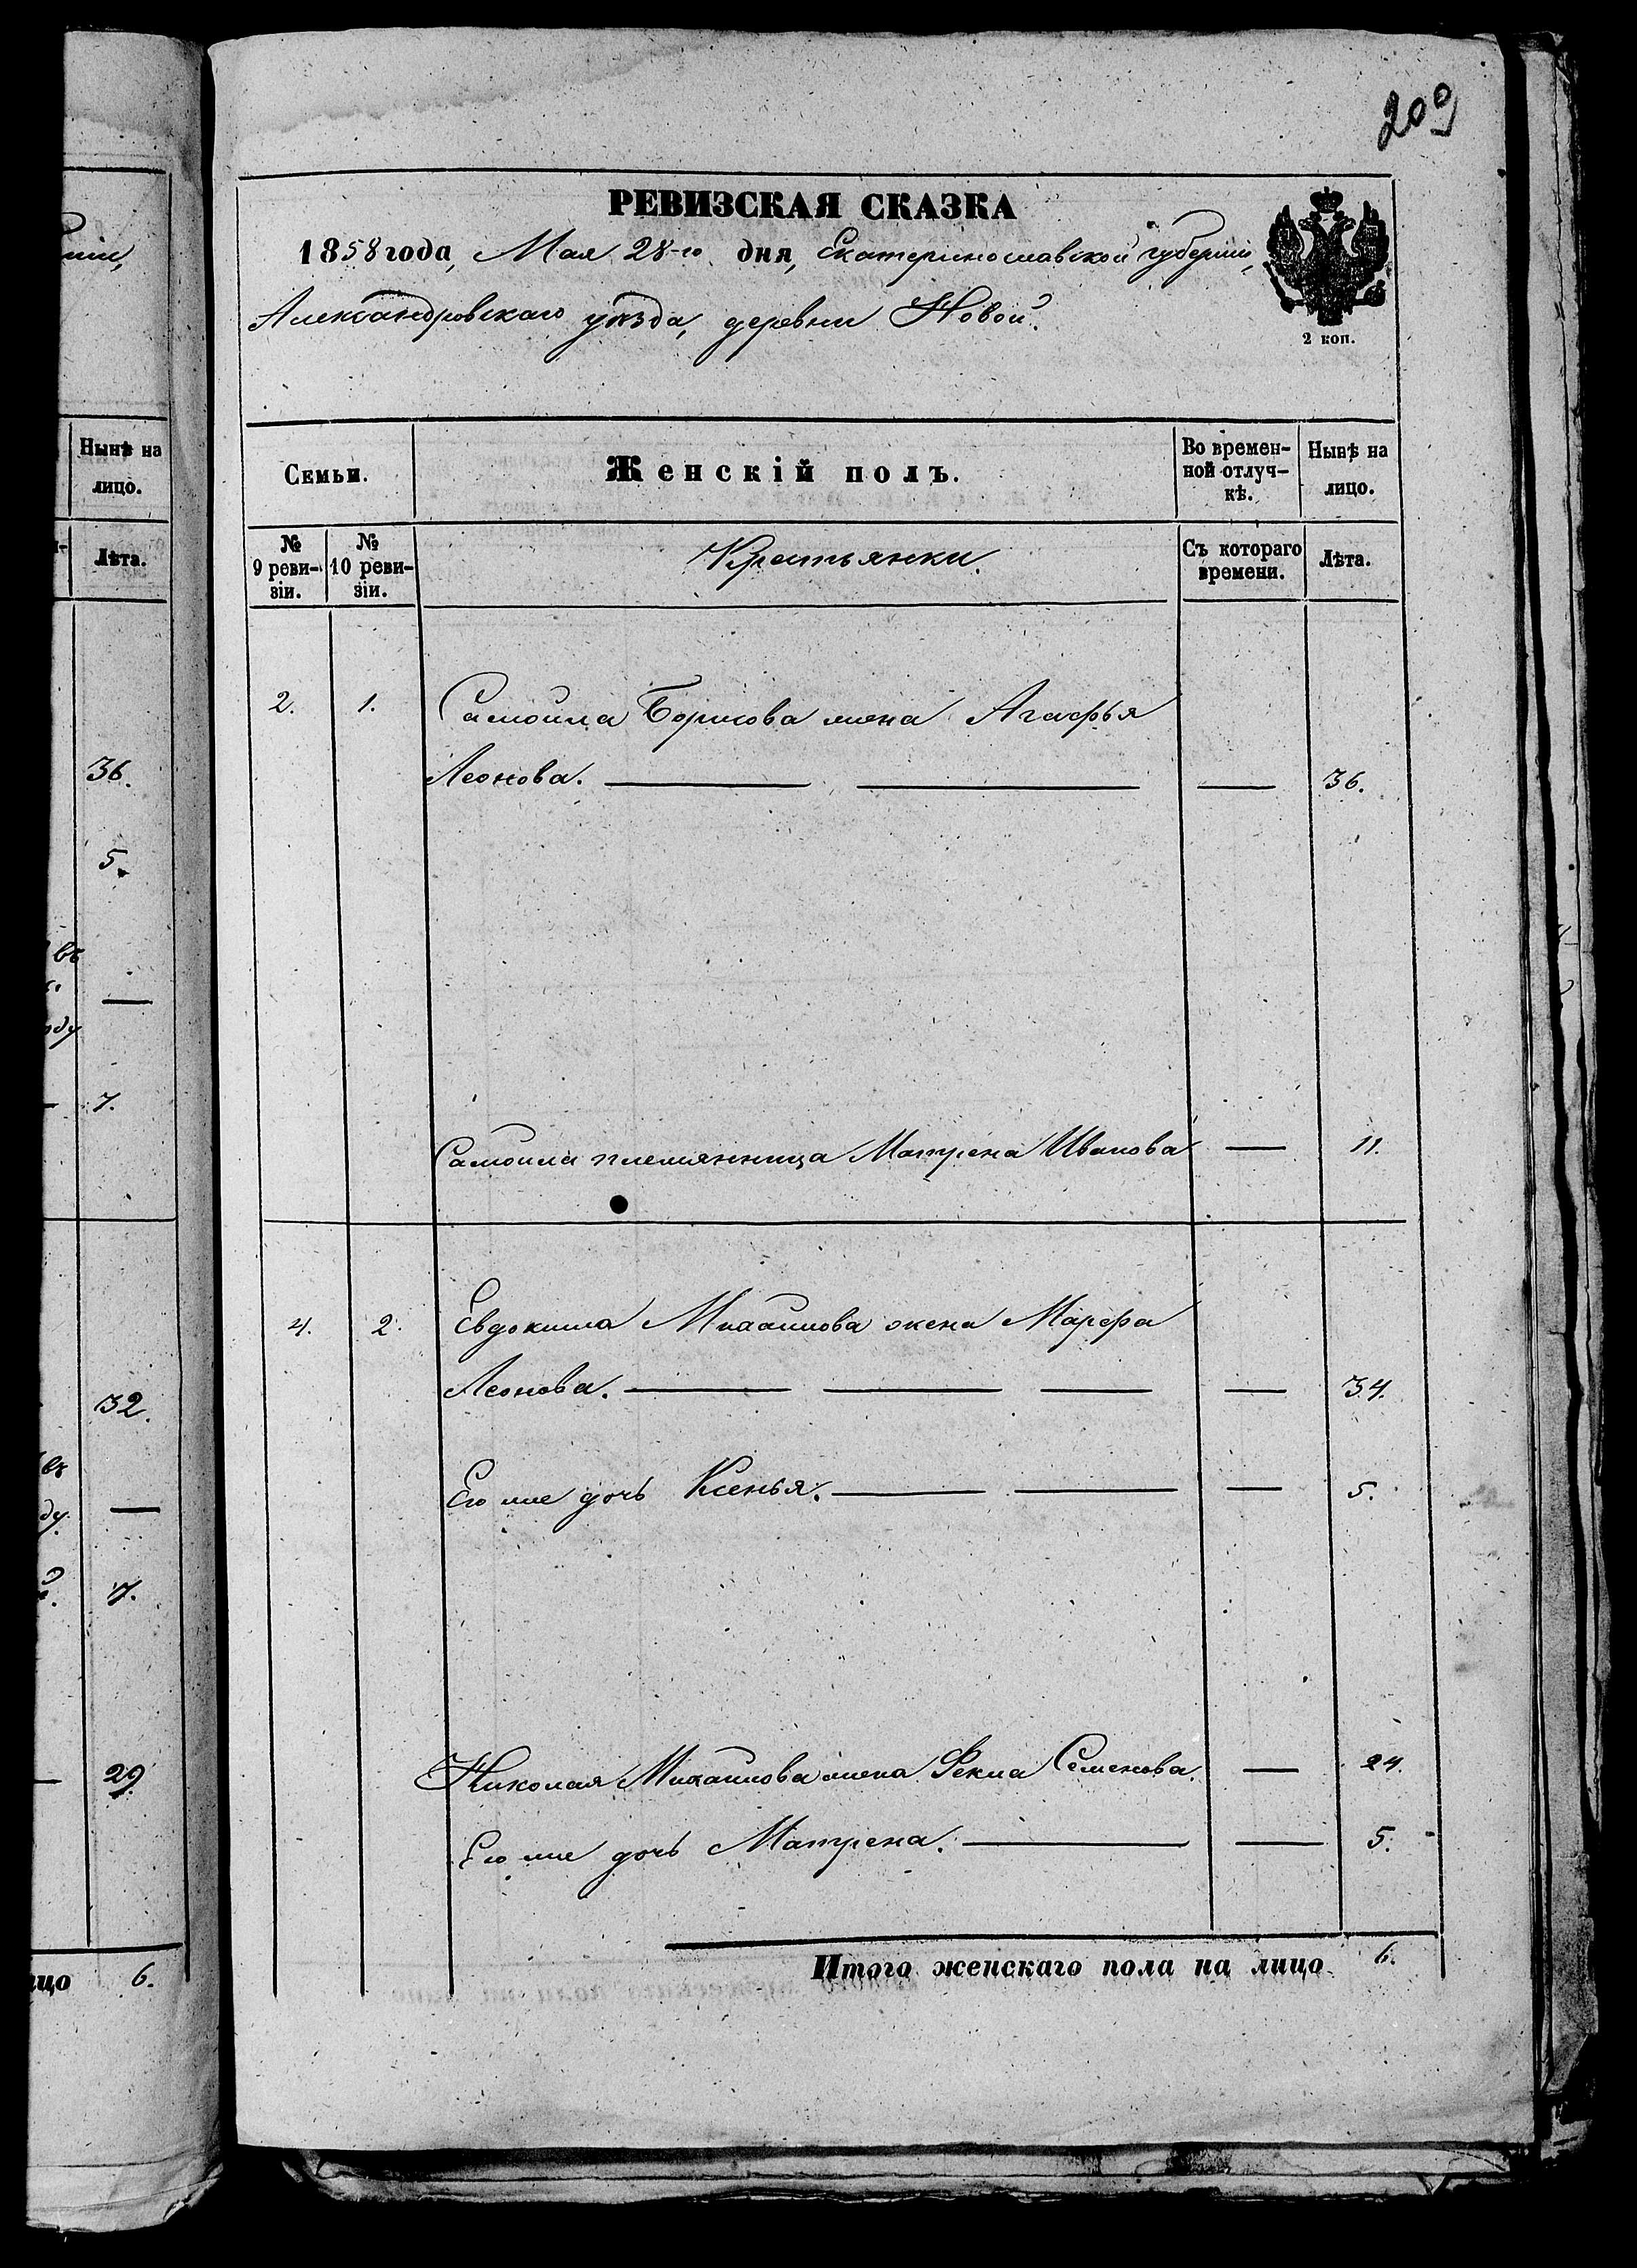 209
РЕВИЗСКАЯ СКАЗКА
1858 года, Мая 28-го дня, Екатеринославской губерніи,
Александровскаго уѣзда, деревни Новой.
2 коп.
Семьи.
Женскій полъ.
Во времен-
ной отлуч-
кѣ.
Нынѣ на
лицо.
№
9 реви-
зіи.
№
10 реви-
зіи.
Крестьянки.
Съ котораго
времени.
Лѣта.
2. 1. Самойла Борисова жена Агафья
Леонова. — — — 36.
Самойла племянница Матрена Иванова — 11.
4. 2. Евдокима Михайлова жена Марфа
Леонова. — — — — 34.
Его же дочь Ксенья. — — — 5.
Николая Михайлова жена Фекла Семенова. — 24.
Его же дочь Матрена. — — 5.
Итого женскаго пола на лицо 6.
ніи,
Нынѣ на
лицо.
Лѣта.
36.
5.
въ
—
оду
7.
32.
въ
ду. —
й. 7.
— 29.
ицо 6.